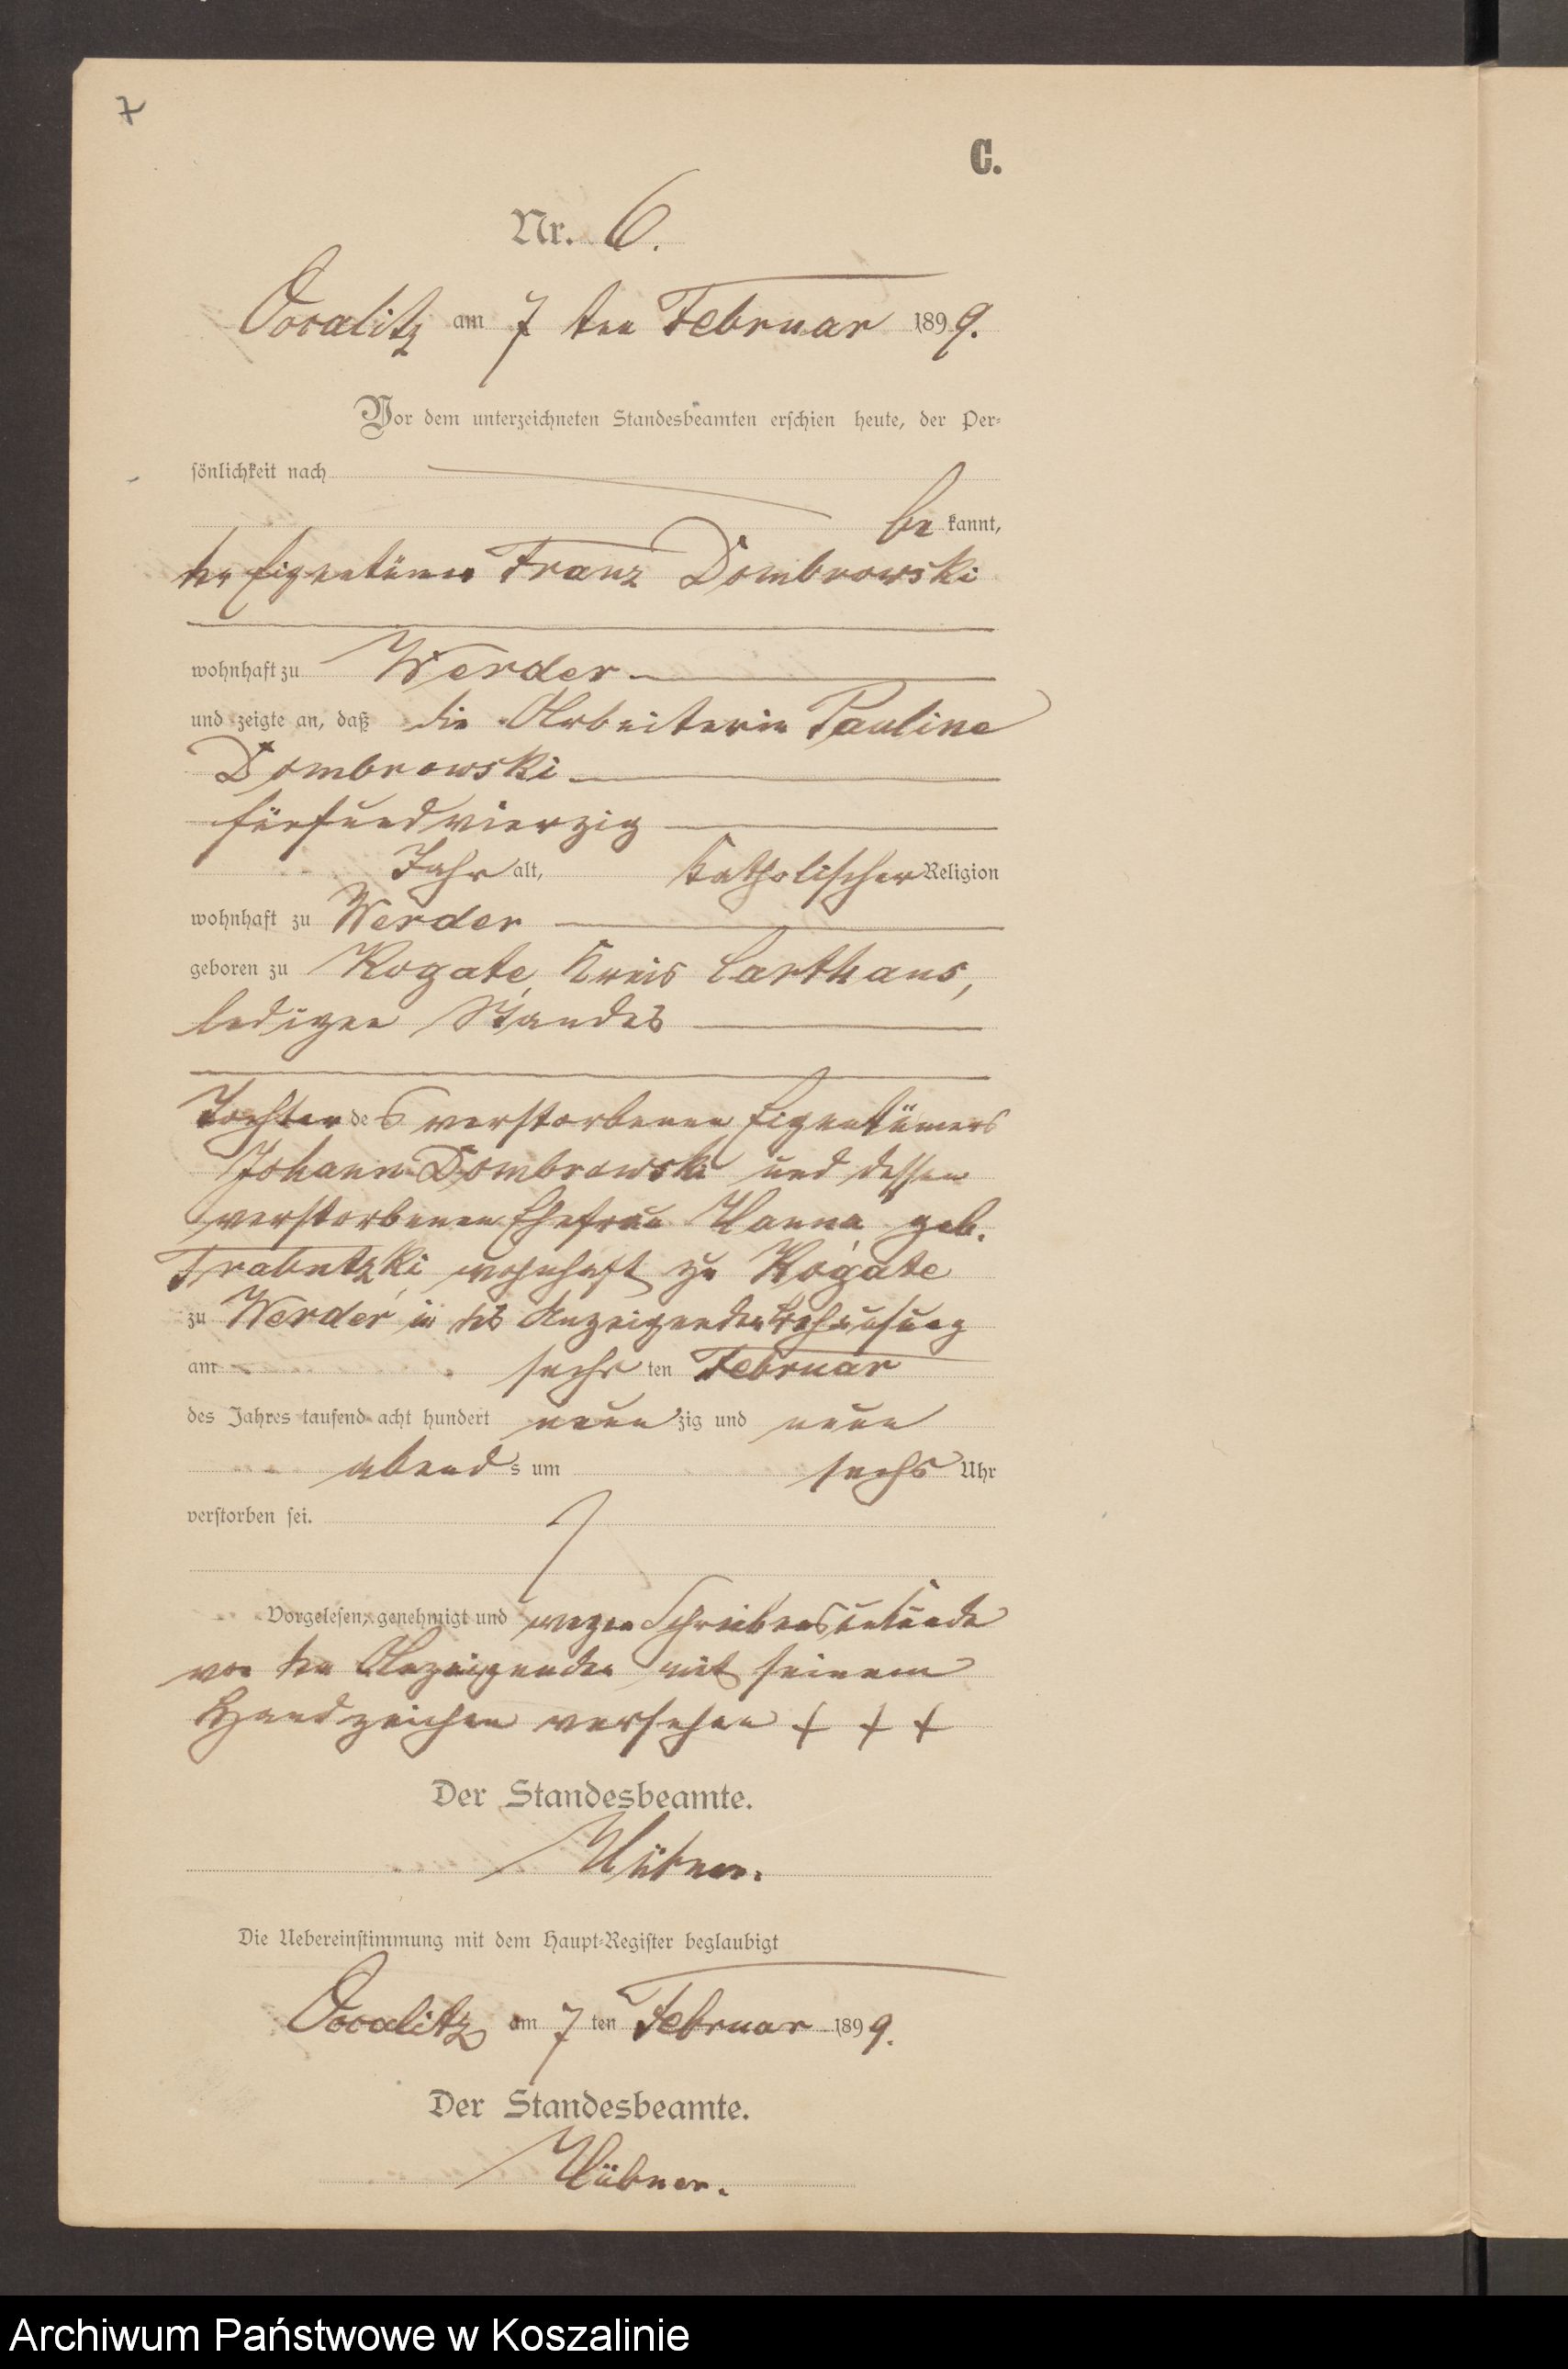 7
C.
Nr. 6.
Occalitz am 7 ten Februar 1899.
Vor dem unterzeichneten Standesbeamten erschien heute, der Per-
sönlichkeit nach
be kannt,
der Eigentümer Franz Dombrowski
wohnhaft zu Werder
und zeigte an, daß die Arbeiterin Pauline
Dombrowski
fünfundvierzig
Jahr alt, katholischer Religion
wohnhaft zu Werder
geboren zu Rogate, Kreis Carthaus,
ledigen Standes
Tochter des verstorbenen Eigentümers
Johann Dombrowski und dessen
verstorbenen Ehefrau Hanna geb.
wohnhaft zu Rogate
zu Werder in des Anzeigenden Behausung
am sechs ten Februar
des Jahres tausend acht hundert neun zig und neun
abend s um sechs Uhr
verstorben sei.
Vorgelesen, genehmigt und wegen Schreibensunkunde
von dem Anzeigenden mit seinem
Handzeichen versehen + + +
Der Standesbeamte.
Hübner.
Die Uebereinstimmung mit dem Haupt-Register beglaubigt
Occalitz am 7 ten Februar 1899.
Der Standesbeamte.
Hübner.
Archiwum Państwowe w Koszalinie